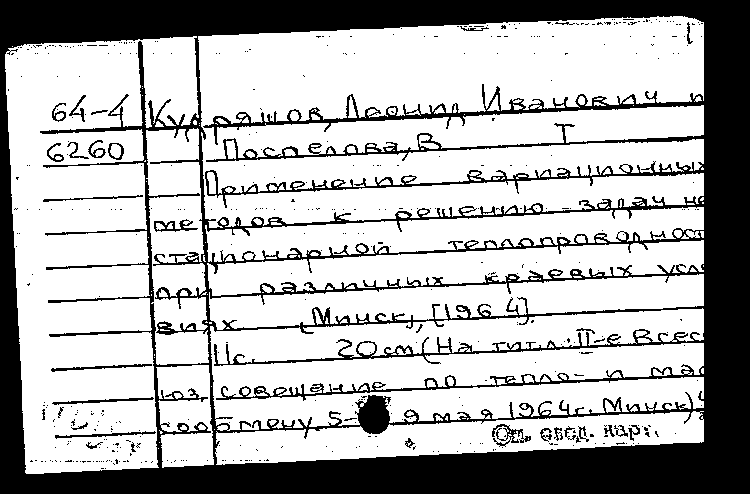 64-4 Кудряшов, Леонид Иванович и
6260 Поспелова, В Т
Применение вариационных
методов к решению задач не
стационарной теплопроводност
при различных краевых усло
виях [Минск], [1964]
11с. 20см (На титл.: II-е Всес
юз. совещание по тепло- и мас
сообмену. 5- 9 мая 1964г. Минск)
См. свод. карт.